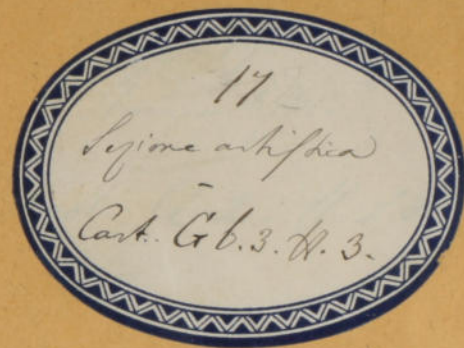 17
Sezione artistica
-
Cart. G b. 3. H. 3.